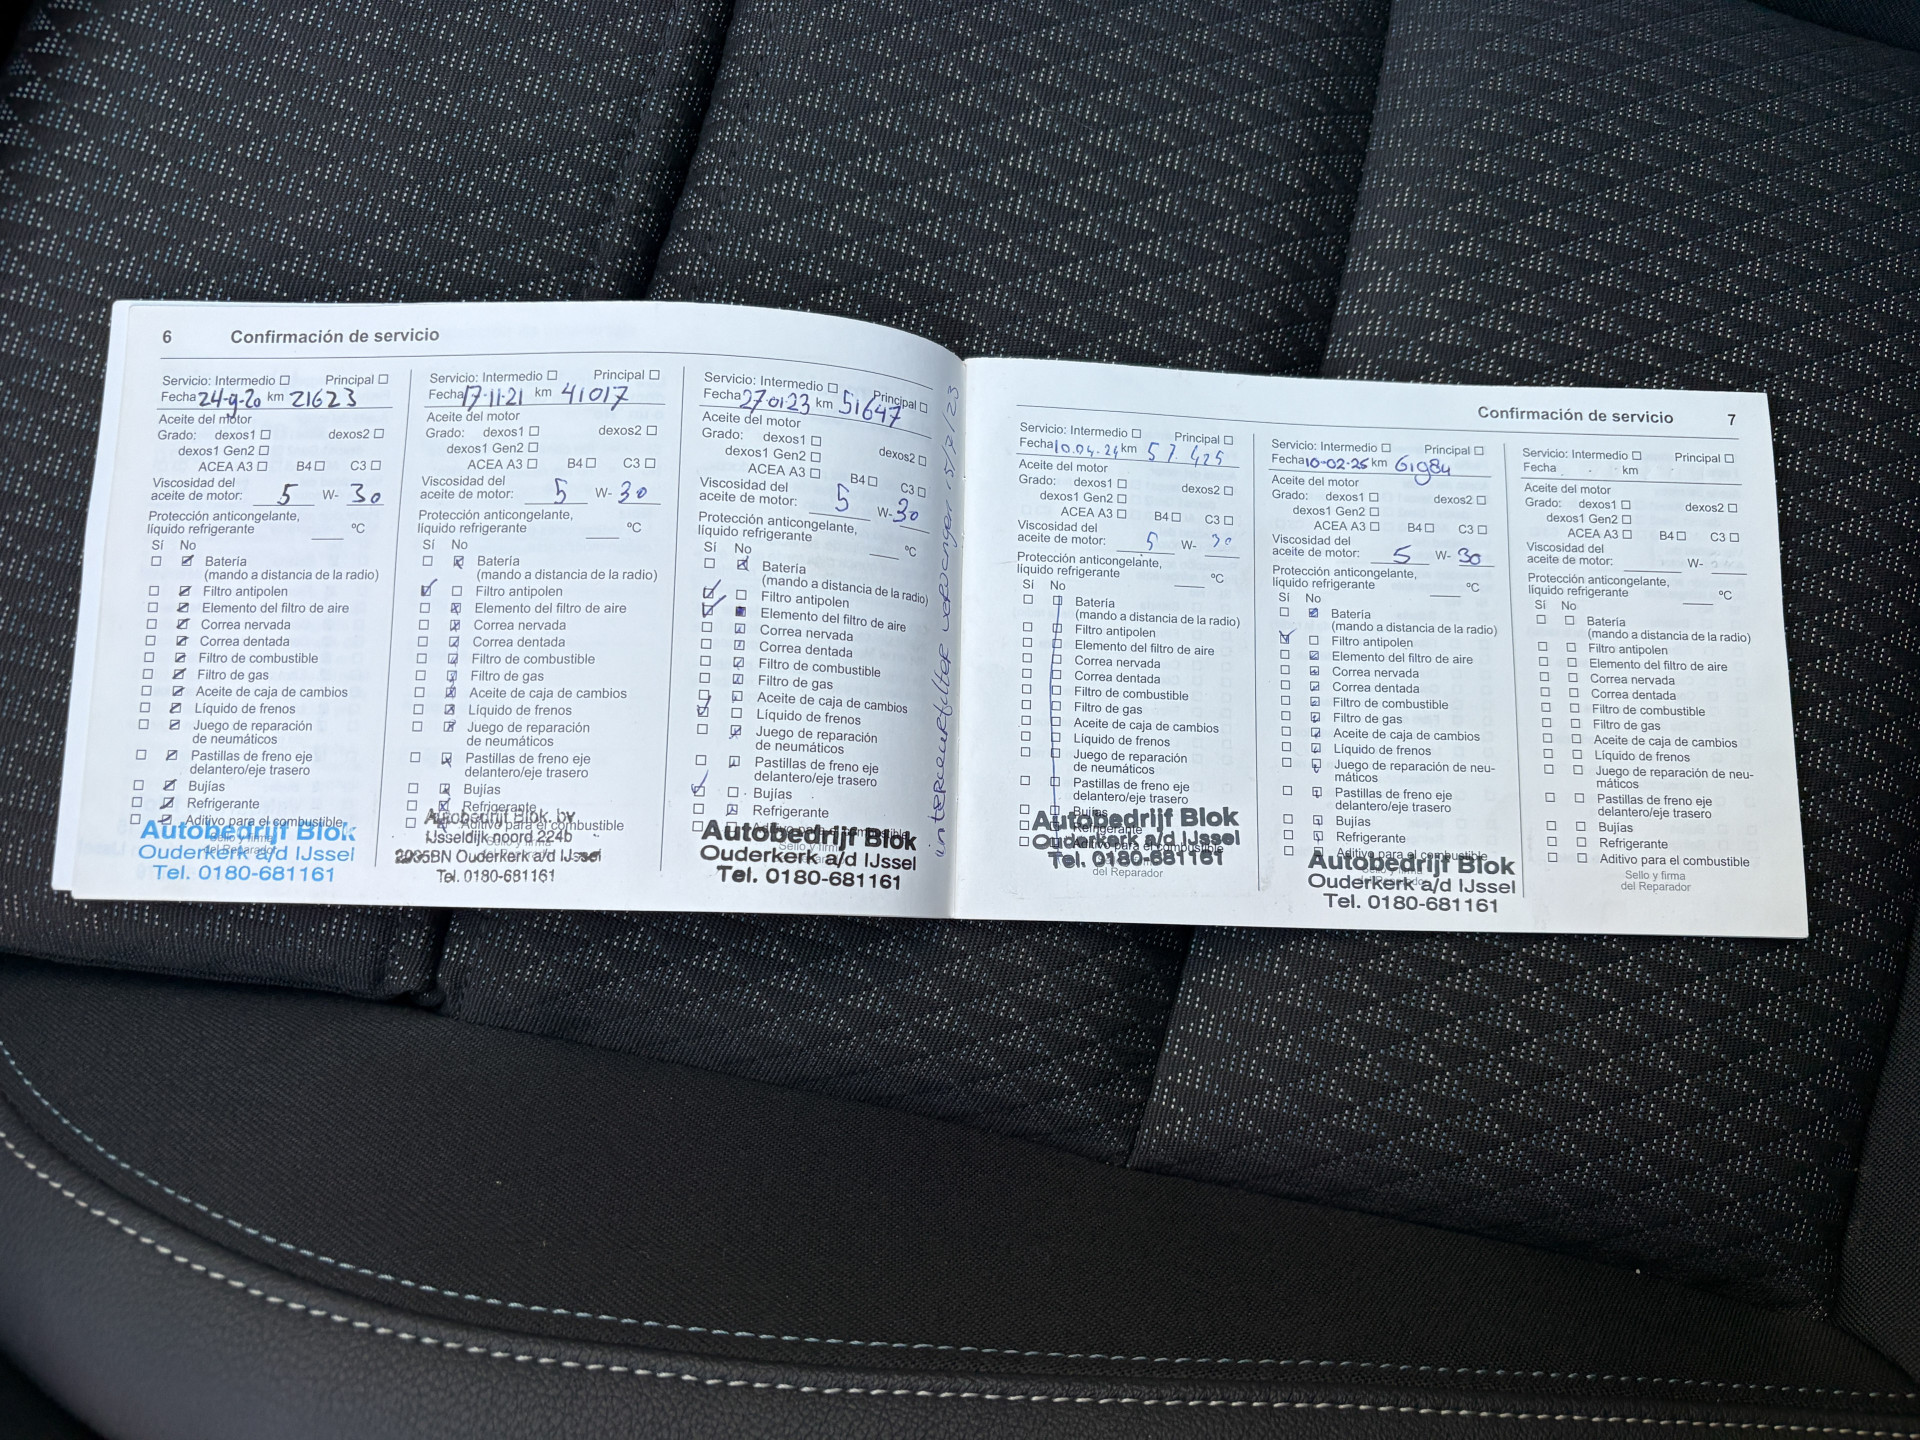 6 Confirmación de servicio
Servicio: Intermedio Principal
Fecha 24-9-20 km 21623
Aceite del motor
Grado: dexos1 dexos2
dexos1 Gen2
ACEA A3 B4 C3
Viscosidad del
aceite de motor: 5 W- 30
Protección anticongelante,
líquido refrigerante ºC
Sí No
Batería
(mando a distancia de la radio)
Filtro antipolen
Elemento del filtro de aire
Correa nervada
Correa dentada
Filtro de combustible
Filtro de gas
Aceite de caja de cambios
Líquido de frenos
Juego de reparación
de neumáticos
Pastillas de freno eje
delantero/eje trasero
Bujías
Refrigerante
Aditivo para el combustible
Sello y firma
del Reparador
Autobedrijf Blok
Ouderkerk a/d IJssel
Tel. 0180-681161
Servicio: Intermedio Principal
Fecha 17-11-21 km 41017
Aceite del motor
Grado: dexos1 dexos2
dexos1 Gen2
ACEA A3 B4 C3
Viscosidad del
aceite de motor: 5 W- 30
Protección anticongelante,
líquido refrigerante ºC
Sí No
Batería
(mando a distancia de la radio)
Filtro antipolen
Elemento del filtro de aire
Correa nervada
Correa dentada
Filtro de combustible
Filtro de gas
Aceite de caja de cambios
Líquido de frenos
Juego de reparación
de neumáticos
Pastillas de freno eje
delantero/eje trasero
Bujías
Refrigerante
Aditivo para el combustible
Autobedrijf Blok. bv
IJsseldijk-noord 224b
2935BN Ouderkerk a/d IJssel
Tel. 0180-681161
Servicio: Intermedio Principal
Fecha 27-01-23 km 51647
Aceite del motor
Grado: dexos1 dexos2
dexos1 Gen2
ACEA A3 B4 C3
Viscosidad del
aceite de motor: 5 W- 30
Protección anticongelante,
líquido refrigerante ºC
Sí No
Batería
(mando a distancia de la radio)
Filtro antipolen
Elemento del filtro de aire
Correa nervada
Correa dentada
Filtro de combustible
Filtro de gas
Aceite de caja de cambios
Líquido de frenos
Juego de reparación
de neumáticos
Pastillas de freno eje
delantero/eje trasero
Bujías
Refrigerante
Aditivo para el combustible
Sello y firma
Autobedrijf Blok
Ouderkerk a/d IJssel
Tel. 0180-681161
Confirmación de servicio 7
Servicio: Intermedio Principal
Fecha 10.04.24 km 57.425
Aceite del motor
Grado: dexos1 dexos2
dexos1 Gen2
ACEA A3 B4 C3
Viscosidad del
aceite de motor: 5 W- 30
Protección anticongelante,
líquido refrigerante ºC
Sí No
Batería
(mando a distancia de la radio)
Filtro antipolen
Elemento del filtro de aire
Correa nervada
Correa dentada
Filtro de combustible
Filtro de gas
Aceite de caja de cambios
Líquido de frenos
Juego de reparación
de neumáticos
Pastillas de freno eje
delantero/eje trasero
Bujías
Refrigerante
Aditivo para el combustible
Autobedrijf Blok
Ouderkerk a/d IJssel
Tel. 0180-681161
del Reparador
Servicio: Intermedio Principal
Fecha 10-02-25 km 61984
Aceite del motor
Grado: dexos1 dexos2
dexos1 Gen2
ACEA A3 B4 C3
Viscosidad del
aceite de motor: 5 W- 30
Protección anticongelante,
líquido refrigerante ºC
Sí No
Batería
(mando a distancia de la radio)
Filtro antipolen
Elemento del filtro de aire
Correa nervada
Correa dentada
Filtro de combustible
Filtro de gas
Aceite de caja de cambios
Líquido de frenos
Juego de reparación de neu-
máticos
Pastillas de freno eje
delantero/eje trasero
Bujías
Refrigerante
Aditivo para el combustible
Autobedrijf Blok
Ouderkerk a/d IJssel
Tel. 0180-681161
Servicio: Intermedio Principal
Fecha km
Aceite del motor
Grado: dexos1 dexos2
dexos1 Gen2
ACEA A3 B4 C3
Viscosidad del
aceite de motor: W-
Protección anticongelante,
líquido refrigerante ºC
Sí No
Batería
(mando a distancia de la radio)
Filtro antipolen
Elemento del filtro de aire
Correa nervada
Correa dentada
Filtro de combustible
Filtro de gas
Aceite de caja de cambios
Líquido de frenos
Juego de reparación de neu-
máticos
Pastillas de freno eje
delantero/eje trasero
Bujías
Refrigerante
Aditivo para el combustible
Sello y firma
del Reparador